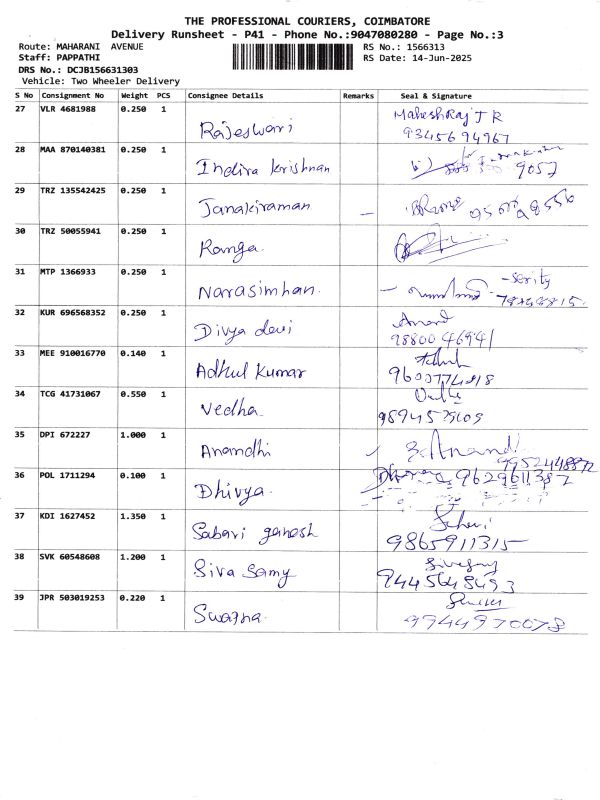 THE PROFESSIONAL COURIERS, COIMBATORE
Delivery Runsheet - P41 - Phone No.:9047080280 - Page No.:3
Route: MAHARANI AVENUE
RS No.: 1566313
Staff: PAPPATHI
RS Date: 14-Jun-2025
DRS No.: DCJB156631303
Vehicle: Two Wheeler Delivery
S No Consignment No Weight PCS Consignee Details Remarks Seal & Signature
27 VLR 4681988 0.250 1 Rajeswari MaheshRaj T R
9345694967
28 MAA 870140381 0.250 1 Indira krishnan 9057
29 TRZ 135542425 0.250 1 Janakiraman
30 TRZ 50055941 0.250 1 Ranga
31 MTP 1366933 0.250 1 Narasimhan.
32 KUR 696568352 0.250 1 Divya devi Anand
9880046941
33 MEE 910016770 0.140 1 Adhul Kumar
34 TCG 41731067 0.550 1 Vedha
35 DPI 672227 1.000 1 Anandhi Anand
36 POL 1711294 0.100 1 Dhivya 9629611382
37 KDI 1627452 1.350 1 Sabari ganesh
9865911315
38 SVK 60548608 1.200 1 Siva Samy
9445648493
39 JPR 503019253 0.220 1 Swapna
9944970078